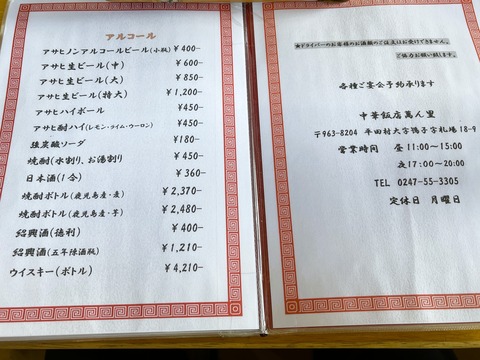 アルコール
アサヒノンアルコールビール(小瓶) ¥400-
アサヒ生ビール(中) ¥600-
アサヒ生ビール(大) ¥850-
アサヒ生ビール(特大) ¥1,200-
アサヒハイボール ¥450-
アサヒ酎ハイ(レモン・ライム・ウーロン) ¥450-
強炭酸ソーダ ¥180-
焼酎(水割り、お湯割り) ¥450-
日本酒(1合) ¥360-
焼酎ボトル(鹿児島産・麦) ¥2,370-
焼酎ボトル(鹿児島産・芋) ¥2,480-
紹興酒(徳利) ¥400-
紹興酒(五年陳酒瓶) ¥1,210-
ウイスキー(ボトル) ¥4,210-
★ドライバーのお客様のお酒類のご注文はお受けできません。
ご協力お願い致します。
各種ご宴会予約承ります
中華飯店萬ん里
〒963-8204 平田村大字鴇子字札場18-9
営業時間 昼11:00~15:00
夜17:00~20:00
TEL 0247-55-3305
定休日 月曜日